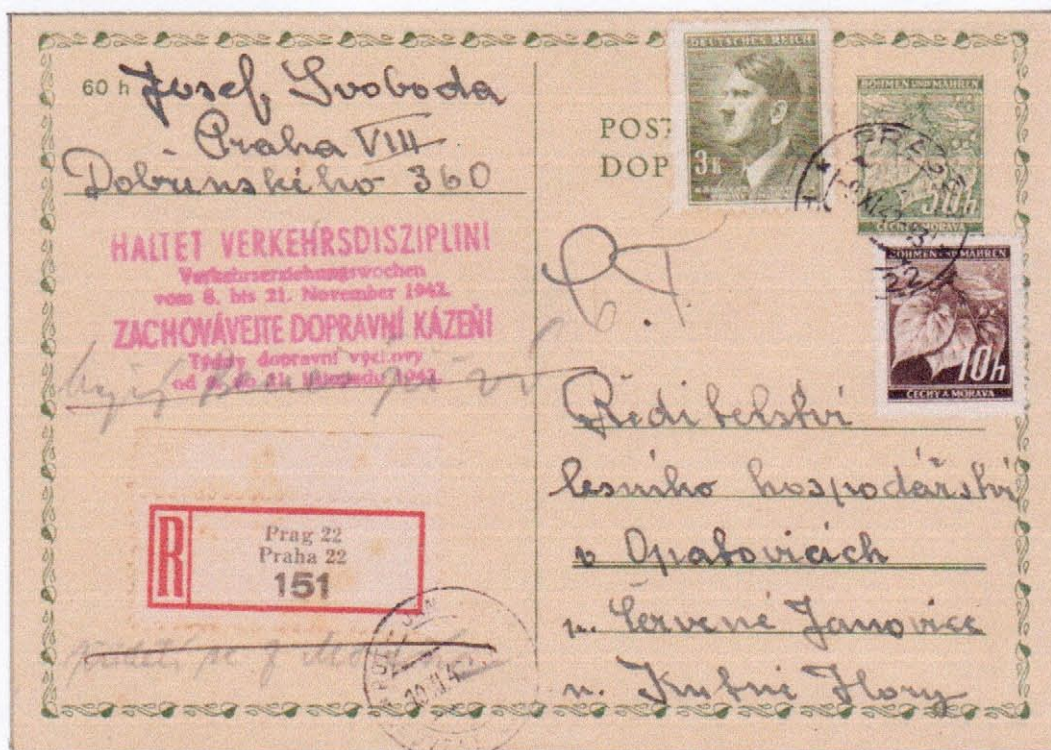 60 h Josef Svoboda
Praha VIII
Dobrunského 360
HALTET VERKEHRSDISZIPLIN!
Verkehrserziehungswochen
vom 8. bis 21. November 1942.
ZACHOVÁVEJTE DOPRAVNÍ KÁZEŇ!
Týdny dopravní výchovy
od 8. do 21. listopadu 1942.
R
Prag 22
Praha 22
151
POST
DOP
DEUTSCHES REICH
3K
BÖHMEN UND MÄHREN
50h
ČECHY A MORAVA
BÖHMEN UND MÄHREN
10h
ČECHY A MORAVA
Č.T.
Ředitelství
lesního hospodářství
v Opatovicích
p. Červené Janovice
u Kutné Hory